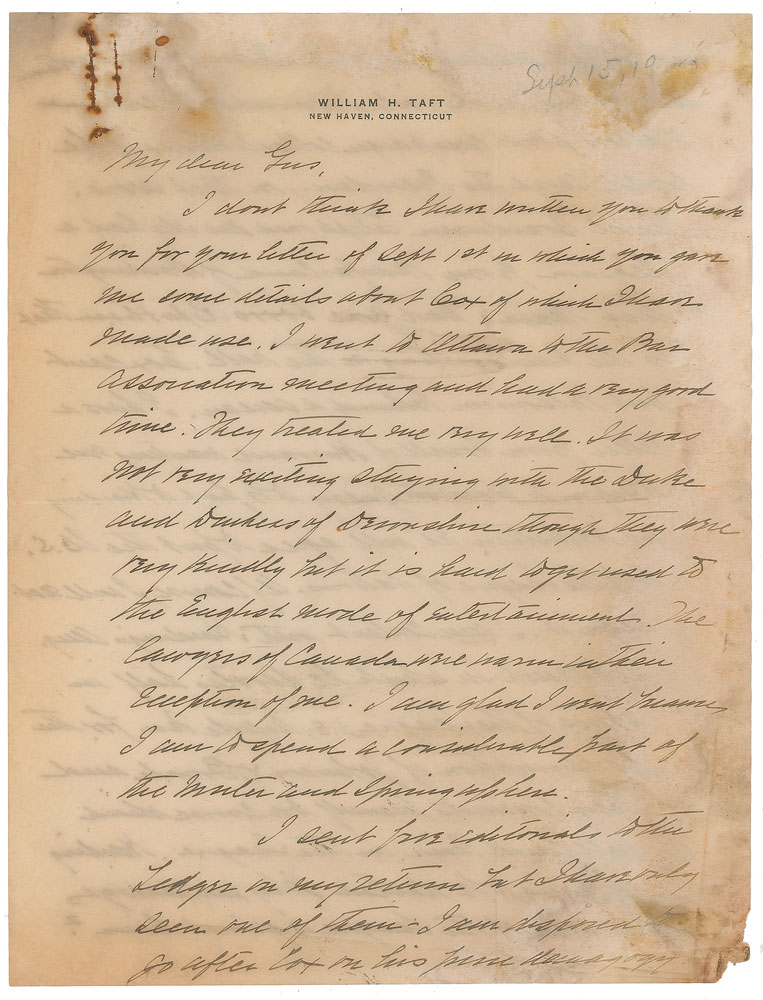 Sept 15, 19
WILLIAM H. TAFT
NEW HAVEN, CONNECTICUT
My dear Gus,
I dont think I have written you to thank
you for your letter of Sept 1st in which you gave
me some details about Cox of which I have
made use. I went to Ottawa to the Bar
Association meeting and had a very good
time. They treated me very well. It was
not very exciting staying with the Duke
and Duchess of Devonshire though they were
very kindly but it is hard to get used to
the English mode of entertainment. The
lawyers of Canada were warm in their
reception of me. I am glad I went because
I am to spend a considerable part of
the Winter and Spring up here.
I sent five editorials to the
Ledger on my return but I have only
seen one of them - I am disposed to
go after Cox on his pure demagogy